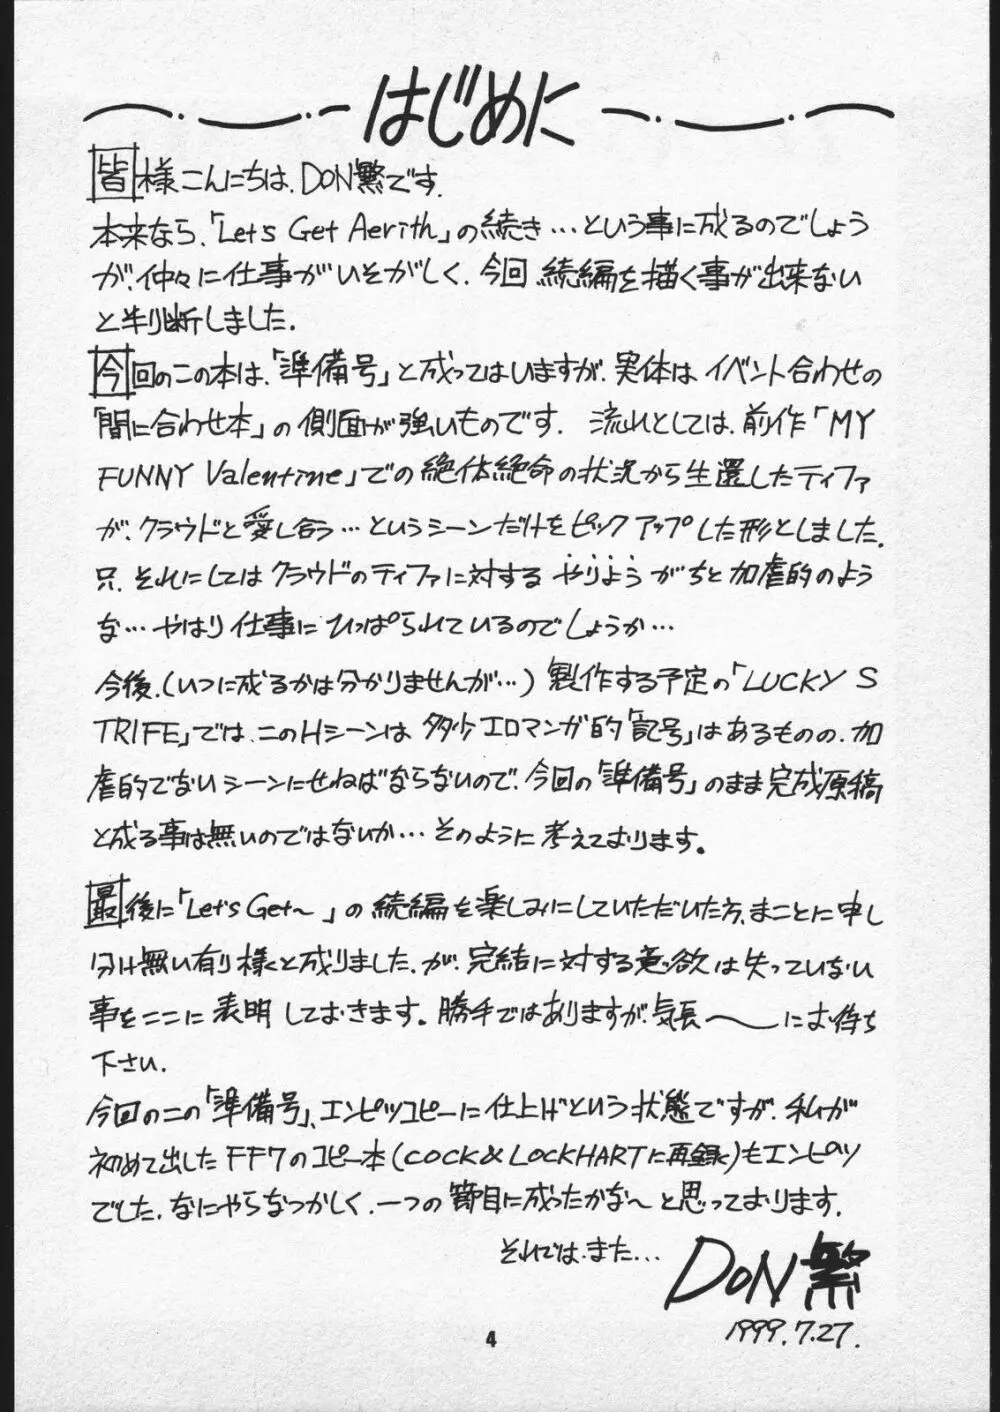 はじめに
皆様こんにちは、DON繁です。
本来なら、「Let's Get Aerith」の続き…という事に成るのでしょう
が、仲々に仕事がいそがしく、今回、続編を描く事が出来ない
と判断しました。
今回のこの本は、「準備号」と成ってはいますが、実体は、イベント合わせの
「間に合わせ本」の側面が強いものです。 流れとしては、前作「MY
FUNNY Valentine」での絶体絶命の状況から生還したティファ
が、クラウドと愛し合う…というシーンだけをピックアップした形としました。
只、それにしてはクラウドのティファに対するやりようがちと加虐的のよう
な…やはり仕事にひっぱられているのでしょうか…
今後、(いつに成るかは分かりませんが…)製作する予定の「LUCKY S
TRIFE」では、このHシーンは多少エロマンガ的「記号」はあるものの、加
虐的でないシーンにせねばならないので、今回の「準備号」のまま完成原稿
と成る事は無いのではないか…そのように考えております。
最後に「Let's Get〜」の続編を楽しみにしていただいた方、まことに申し
分け無い有り様と成りました、が、完結に対する意欲は失っていない
事をここに表明しておきます。勝手ではありますが、気長〜にお待ち
下さい。
今回のこの「準備号」、エンピツコピーに仕上げという状態ですが、私が
初めて出したFF7のコピー本(COCK&LOCKHARTに再録)もエンピツ
でした。なにやらなつかしく、一つの節目に成ったかな〜と思っております。
それでは、また…
DON繁
1999.7.27.
4